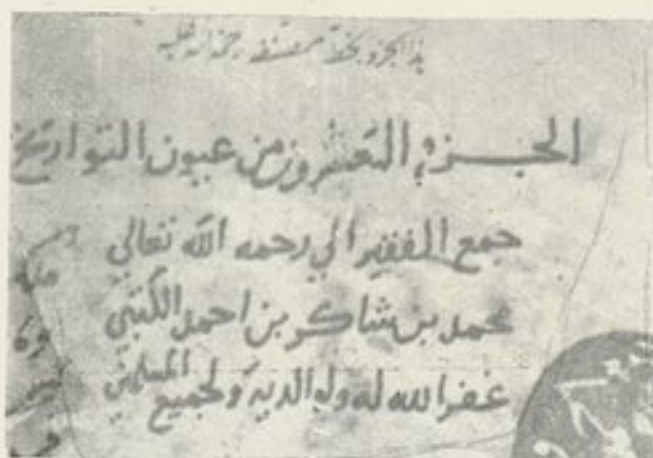 هذا الجزء بخط مصنفه رحمة الله عليه
الجزء العشرون من عيون التواريخ
جمع الفقير الي رحمه الله تعالي
محمد بن شاكر بن احمد الكتبي
غفر الله له ولوالديه ولجميع المسلمين